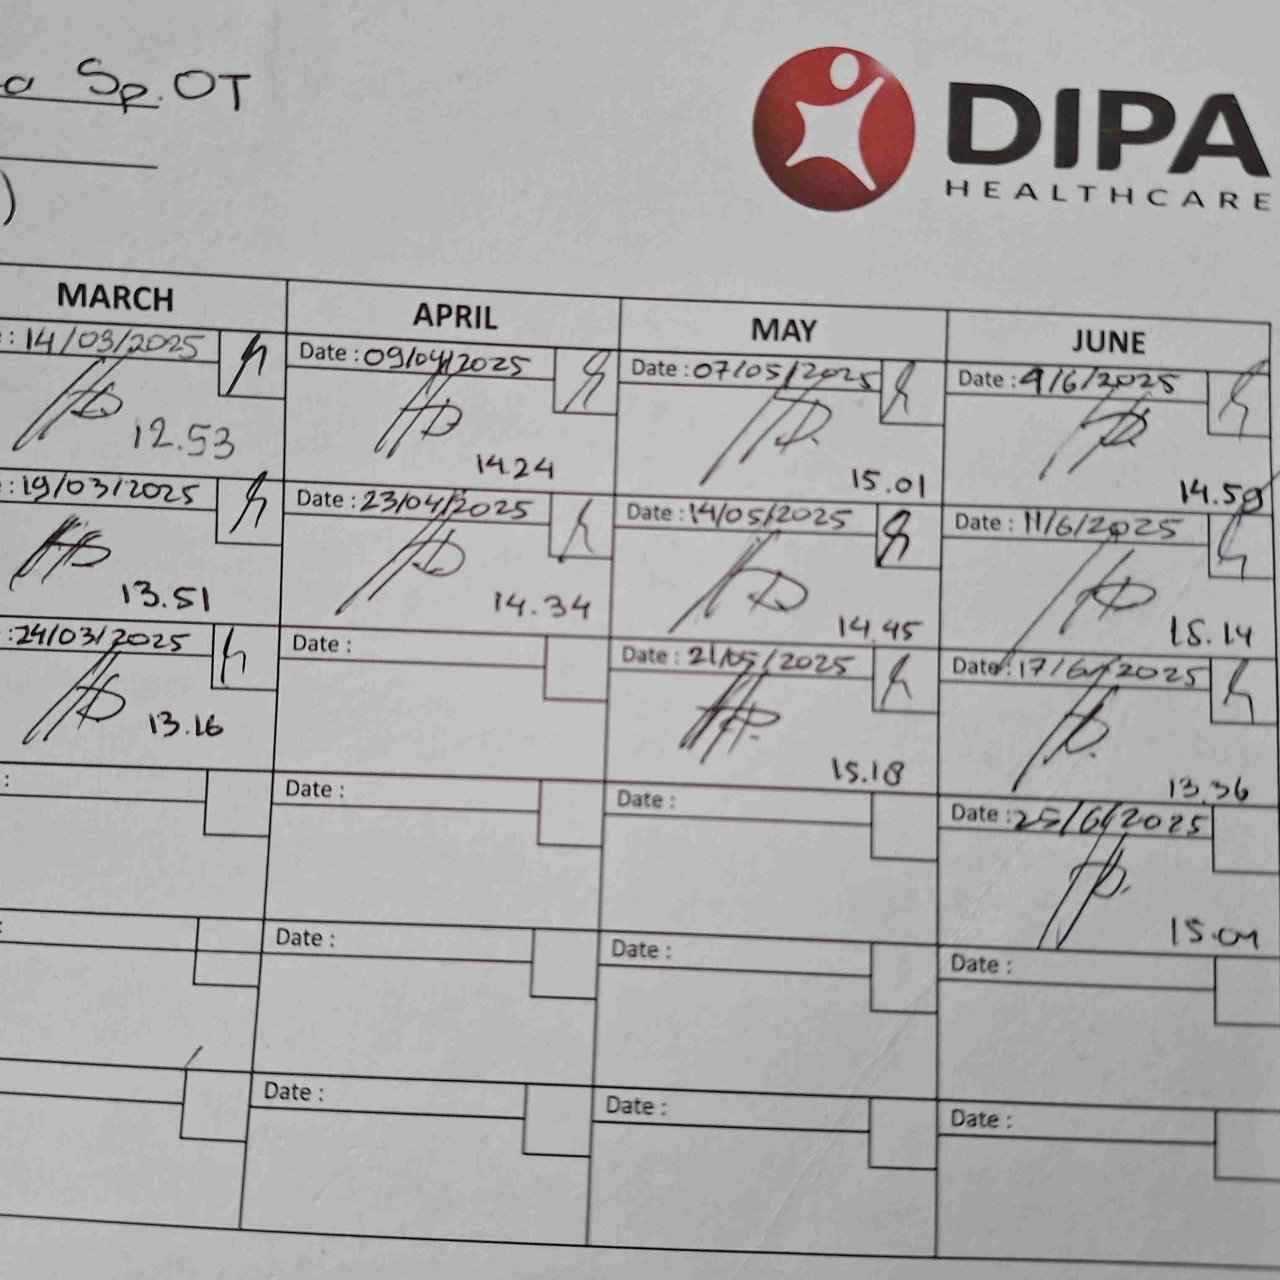 Sp. OT
)
DIPA
HEALTHCARE
MARCH APRIL MAY JUNE
: 14/03/2025 Date : 09/04/2025 Date : 07/05/2025 Date : 9/6/2025
12.53 14.24 15.01 14.59
: 19/03/2025 Date : 23/04/2025 Date : 14/05/2025 Date : 11/6/2025
13.51 14.34 14.45 15.14
: 24/03/2025 Date : Date : 21/05/2025 Date : 17/6/2025
13.16 15.18 13.36
: Date : Date : Date : 25/6/2025
15.04
: Date : Date : Date :
Date : Date : Date :